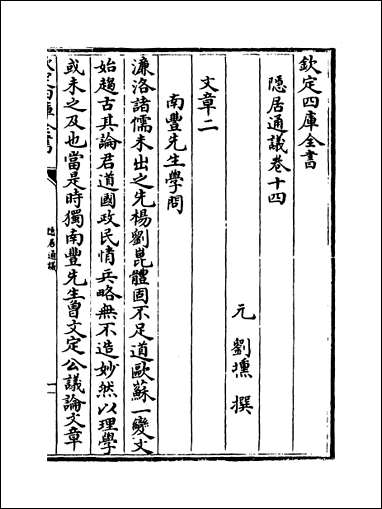 欽定四庫全書
隱居通議卷十四
元 劉壎 撰
文章二
南豐先生學問
濂洛諸儒未出之先楊劉崑體固不足道歐蘇一變文
始趨古其論君道國政民情兵略無不造妙然以理學
或未之及也當是時獨南豐先生曾文定公議論文章
欽定四庫全書
隱居通議
一